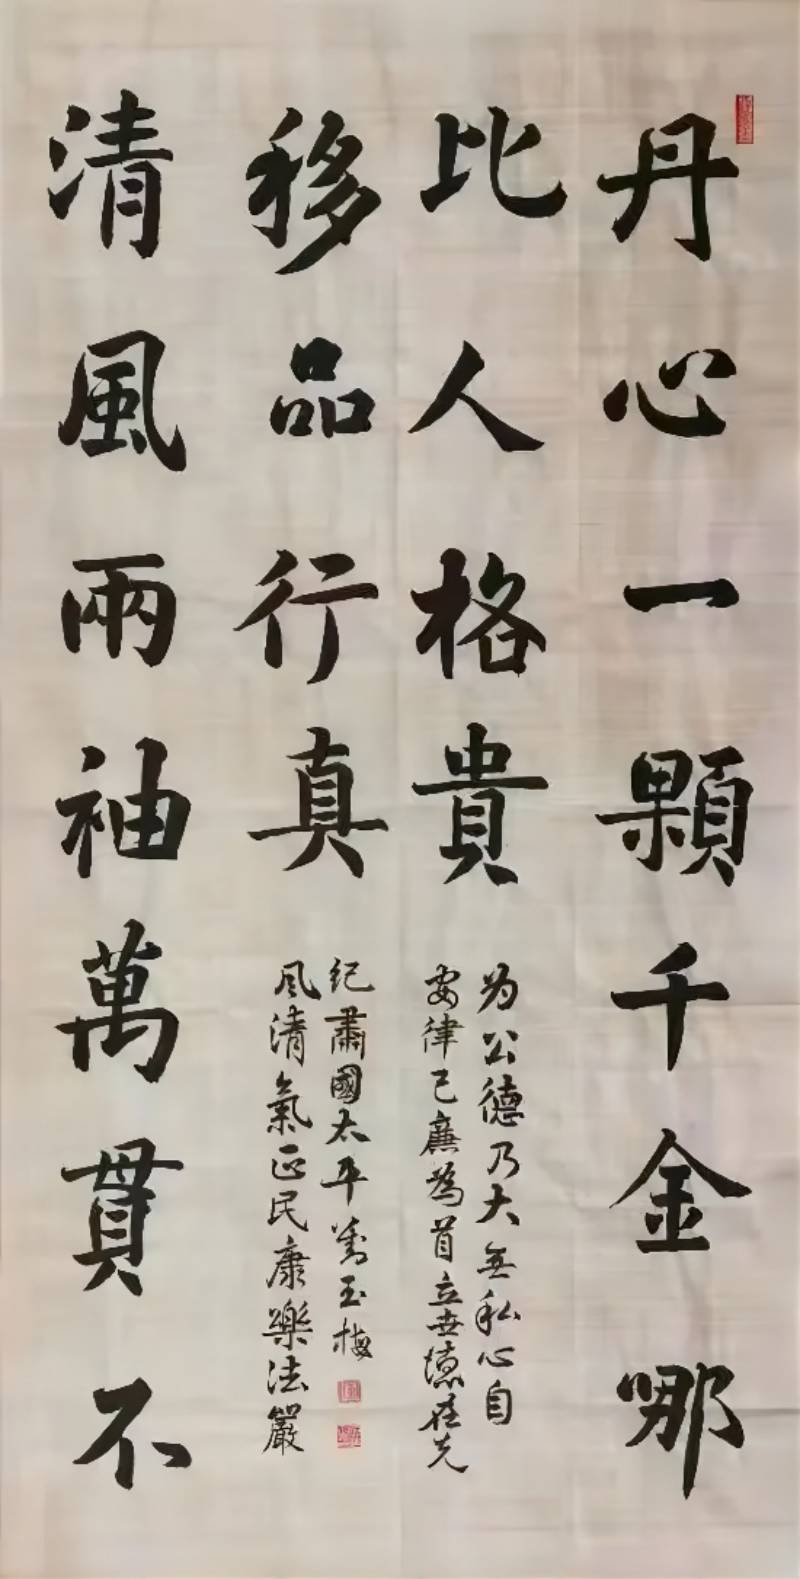 丹心一顆千金哪
比人格貴
为公德乃大無私心自
安律己廉為首立世在先
清風兩袖萬貫不
移品行真
風清氣正民康樂法嚴
紀肅國太平玉梅